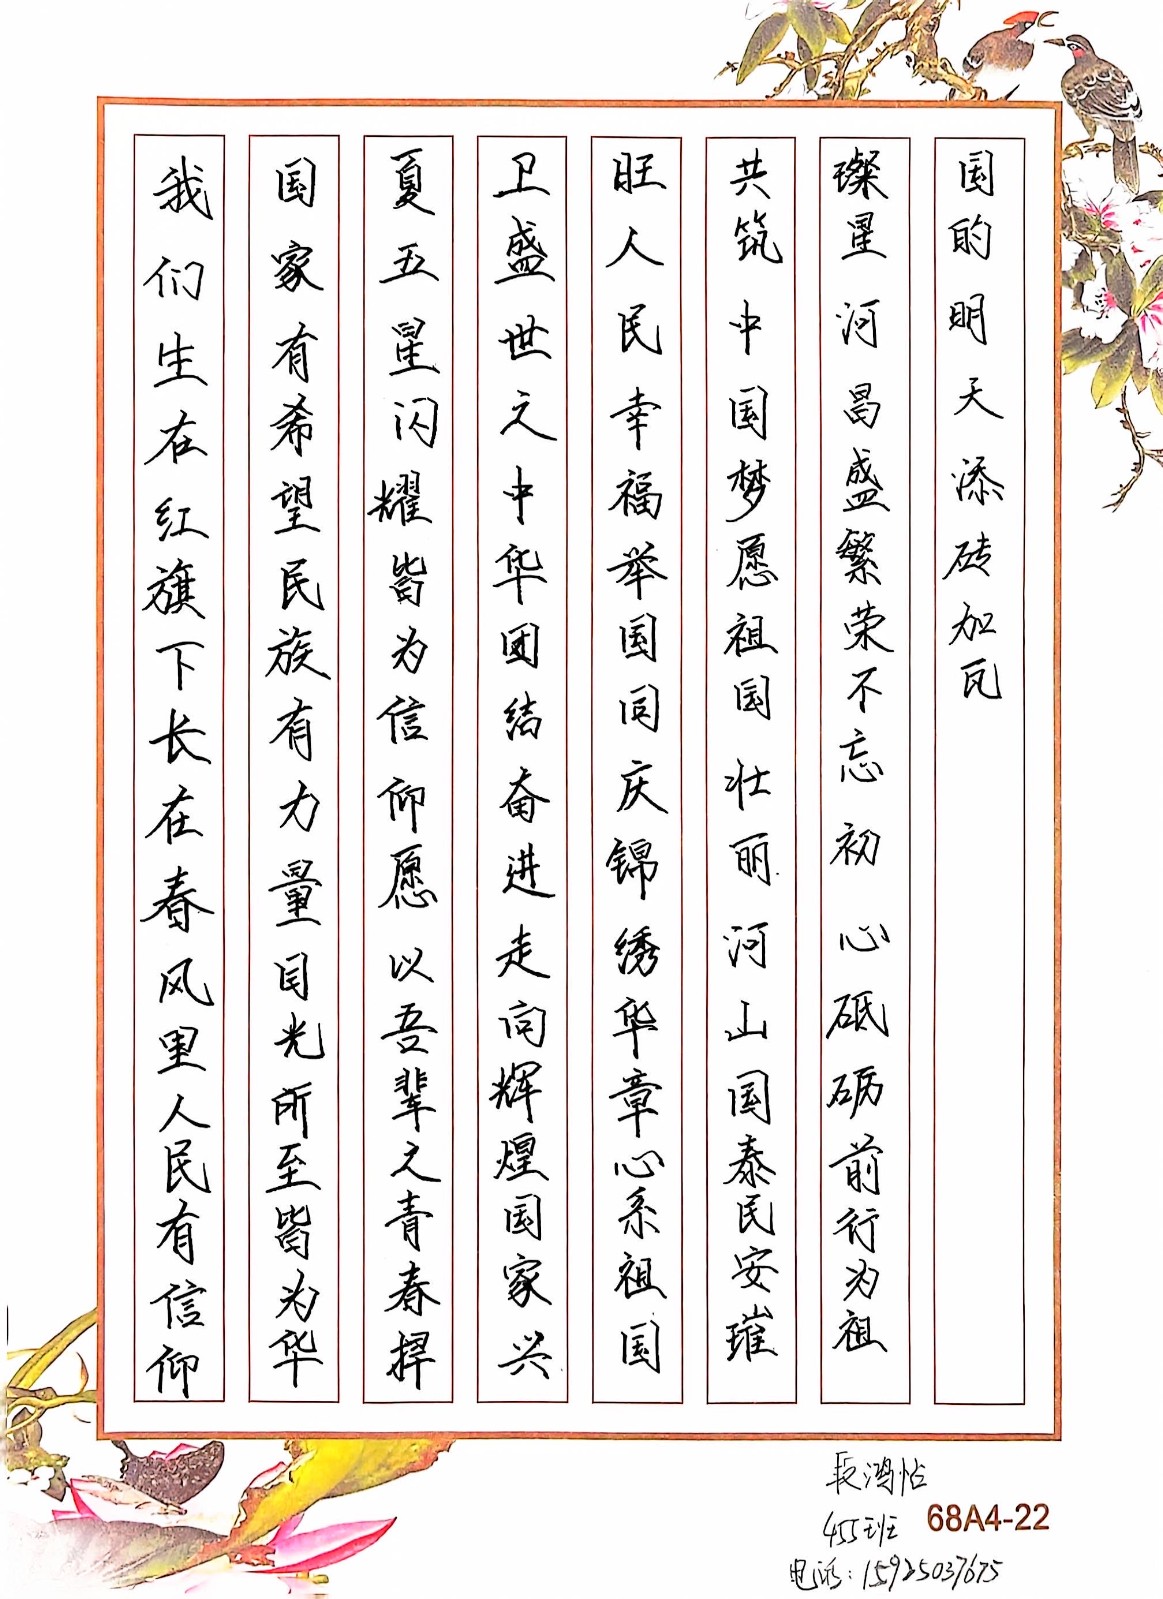 我们生在红旗下长在春风里人民有信仰
国家有希望民族有力量目光所至皆为华
夏五星闪耀皆为信仰愿以吾辈之青春捍
卫盛世之中华团结奋进走向辉煌国家兴
旺人民幸福举国同庆锦绣华章心系祖国
共筑中国梦愿祖国壮丽河山国泰民安璀
璨星河昌盛繁荣不忘初心砥砺前行为祖
国的明天添砖加瓦
段鸿
455班
68A4-22
电话:15925037675